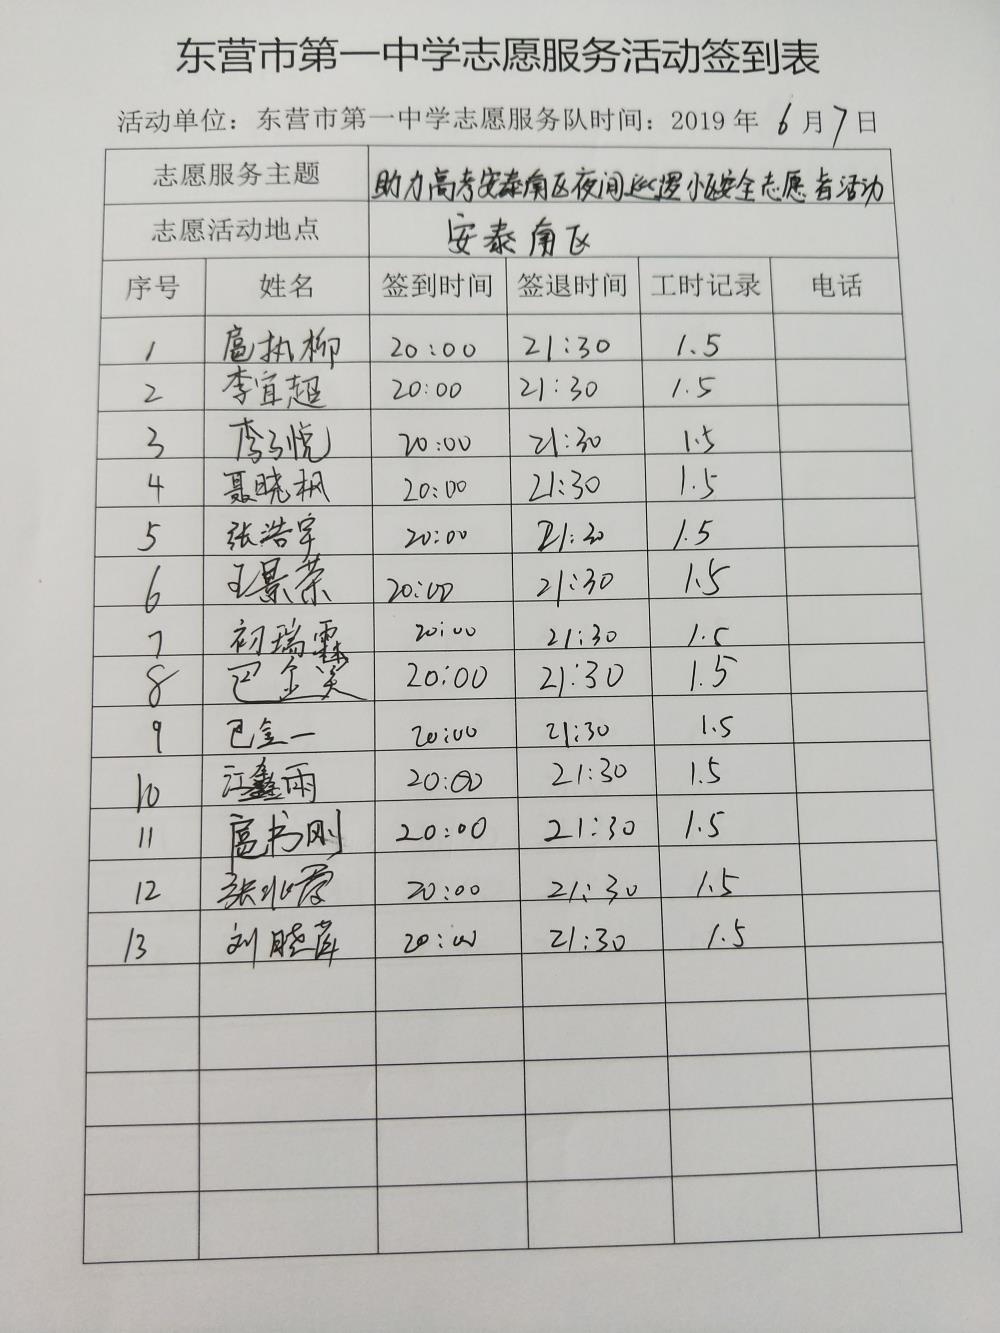 东营市第一中学志愿服务活动签到表
活动单位：东营市第一中学志愿服务队时间：2019 年 6 月 7 日
志愿服务主题 助力高考安泰南区夜间巡逻小区安全志愿者活动
志愿活动地点 安泰南区
序号 姓名 签到时间 签退时间 工时记录 电话
1 扈执柳 20:00 21:30 1.5
2 李宜超 20:00 21:30 1.5
3 李子悦 20:00 21:30 1.5
4 聂晓枫 20:00 21:30 1.5
5 张浩宇 20:00 21:30 1.5
6 王景荣 20:00 21:30 1.5
7 初瑞霖 20:00 21:30 1.5
8 巴金美 20:00 21:30 1.5
9 巴金一 20:00 21:30 1.5
10 江鑫雨 20:00 21:30 1.5
11 扈书刚 20:00 21:30 1.5
12 张 20:00 21:30 1.5
13 刘晓萍 20:00 21:30 1.5